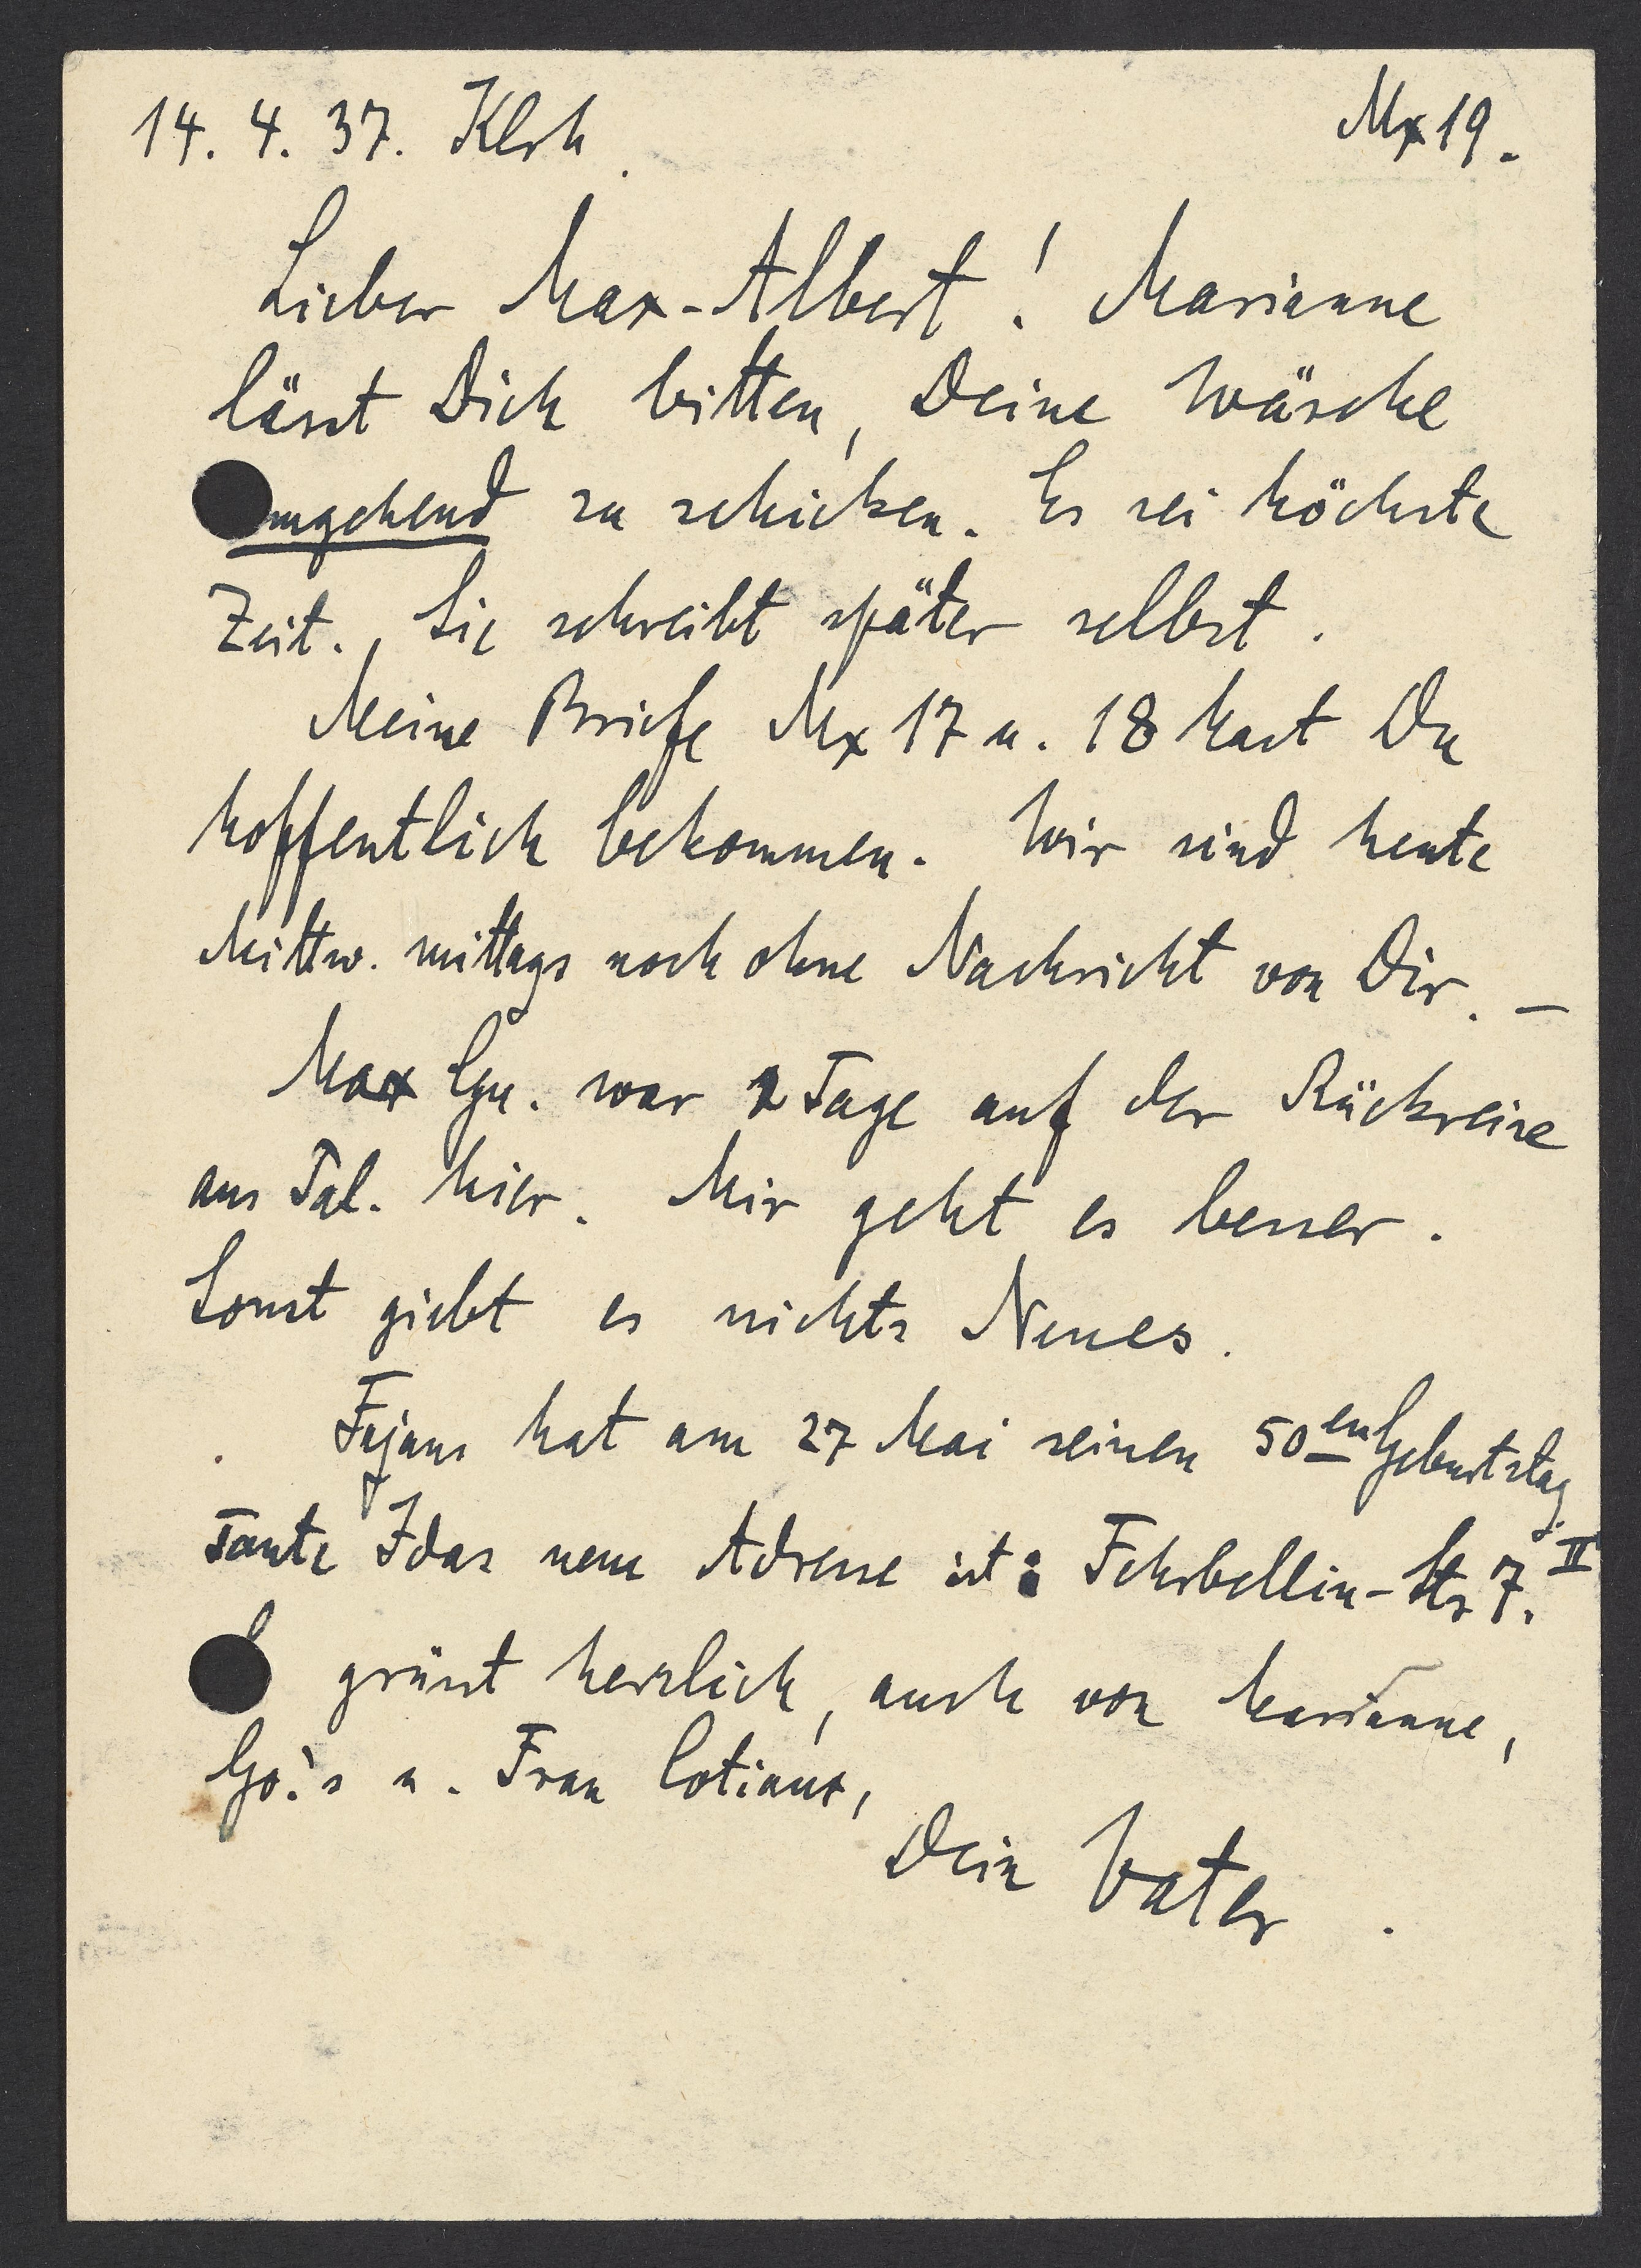 14. 4. 37. Klrh. Mx 19.
Lieber Max-Albert! Marianne
lässt Dich bitten, Deine Wäsche
umgehend zu schicken. Es sei höchste
Zeit. Sie schreibt später selbst.
Meine Briefe Mx 17 u. 18 hast Du
hoffentlich bekommen. Wir sind heute
Mittw. mittags noch ohne Nachricht von Dir. –
Max Gu. war 2 Tage auf der Rückreise
aus Tal. hier. Mir geht es besser.
Sonst giebt es nichts Neues.
Fajans hat am 27 Mai seinen 50en Geburtstag.
Tante Idas neue Adresse ist: Fehrbellin-Str 7. II
grüsst herzlich, auch von Marianne,
Go.'s u. Frau Cotiaux,
Dein Vater.